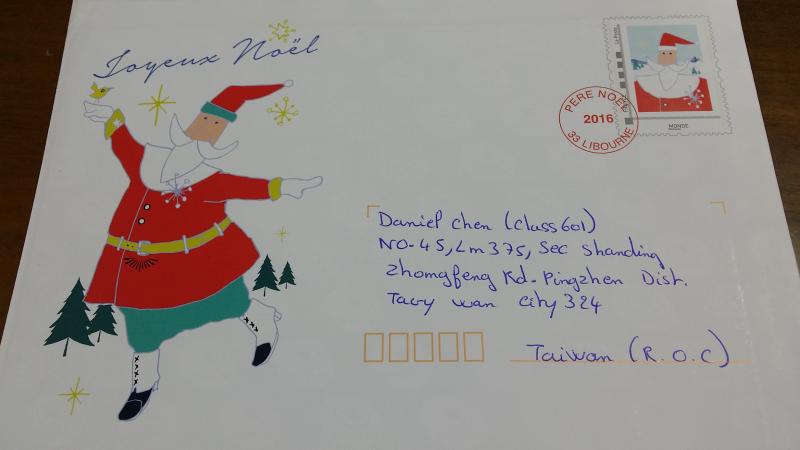 Joyeux Noël
MONDE
PERE NOËL
2016
33 LIBOURNE
Daniel Chen (Class 601)
NO-45, Ln 375, Sec Shanding
Zhongfeng Rd. Pingzhen Dist.
Taoy uan City 324
Taiwan (R.O.C)